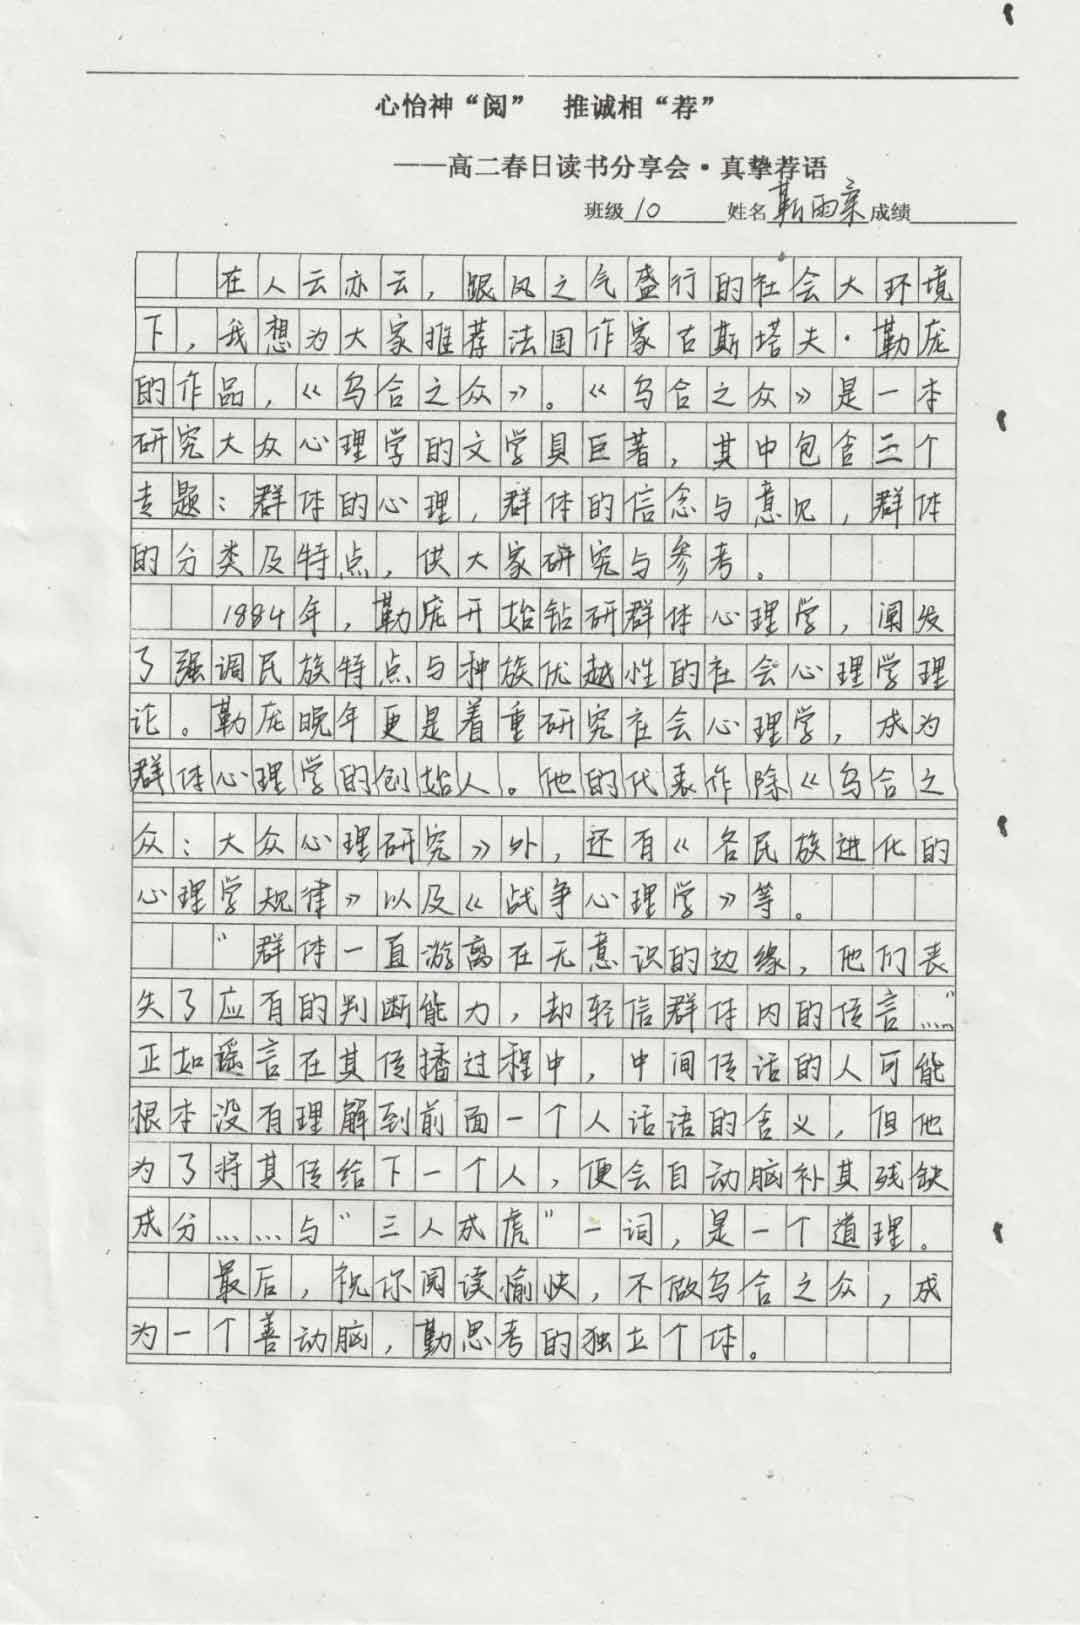 心怡神“阅”　推诚相“荐”
——高二春日读书分享会·真挚荐语
班级 10 姓名 靳雨亲 成绩
在人云亦云，跟风之气盛行的社会大环境
下，我想为大家推荐法国作家古斯塔夫·勒庞
的作品，《乌合之众》。《乌合之众》是一本
研究大众心理学的文学具巨著，其中包含三个
专题：群体的心理，群体的信念与意见，群体
的分类及特点，供大家研究与参考。
1884年，勒庞开始钻研群体心理学，阐发
了强调民族特点与种族优越性的社会心理学理
论。勒庞晚年更是着重研究社会心理学，成为
群体心理学的创始人。他的代表作除《乌合之
众：大众心理研究》外，还有《各民族进化的
心理学规律》以及《战争心理学》等。
“群体一直游离在无意识的边缘，他们丧
失了应有的判断能力，却轻信群体内的传言……”
正如谣言在其传播过程中，中间传话的人可能
根本没有理解到前面一个人话语的含义，但他
为了将其传给下一个人，便会自动脑补其残缺
成分……与“三人成虎”一词，是一个道理。
最后，祝你阅读愉快，不做乌合之众，成
为一个善动脑，勤思考的独立个体。